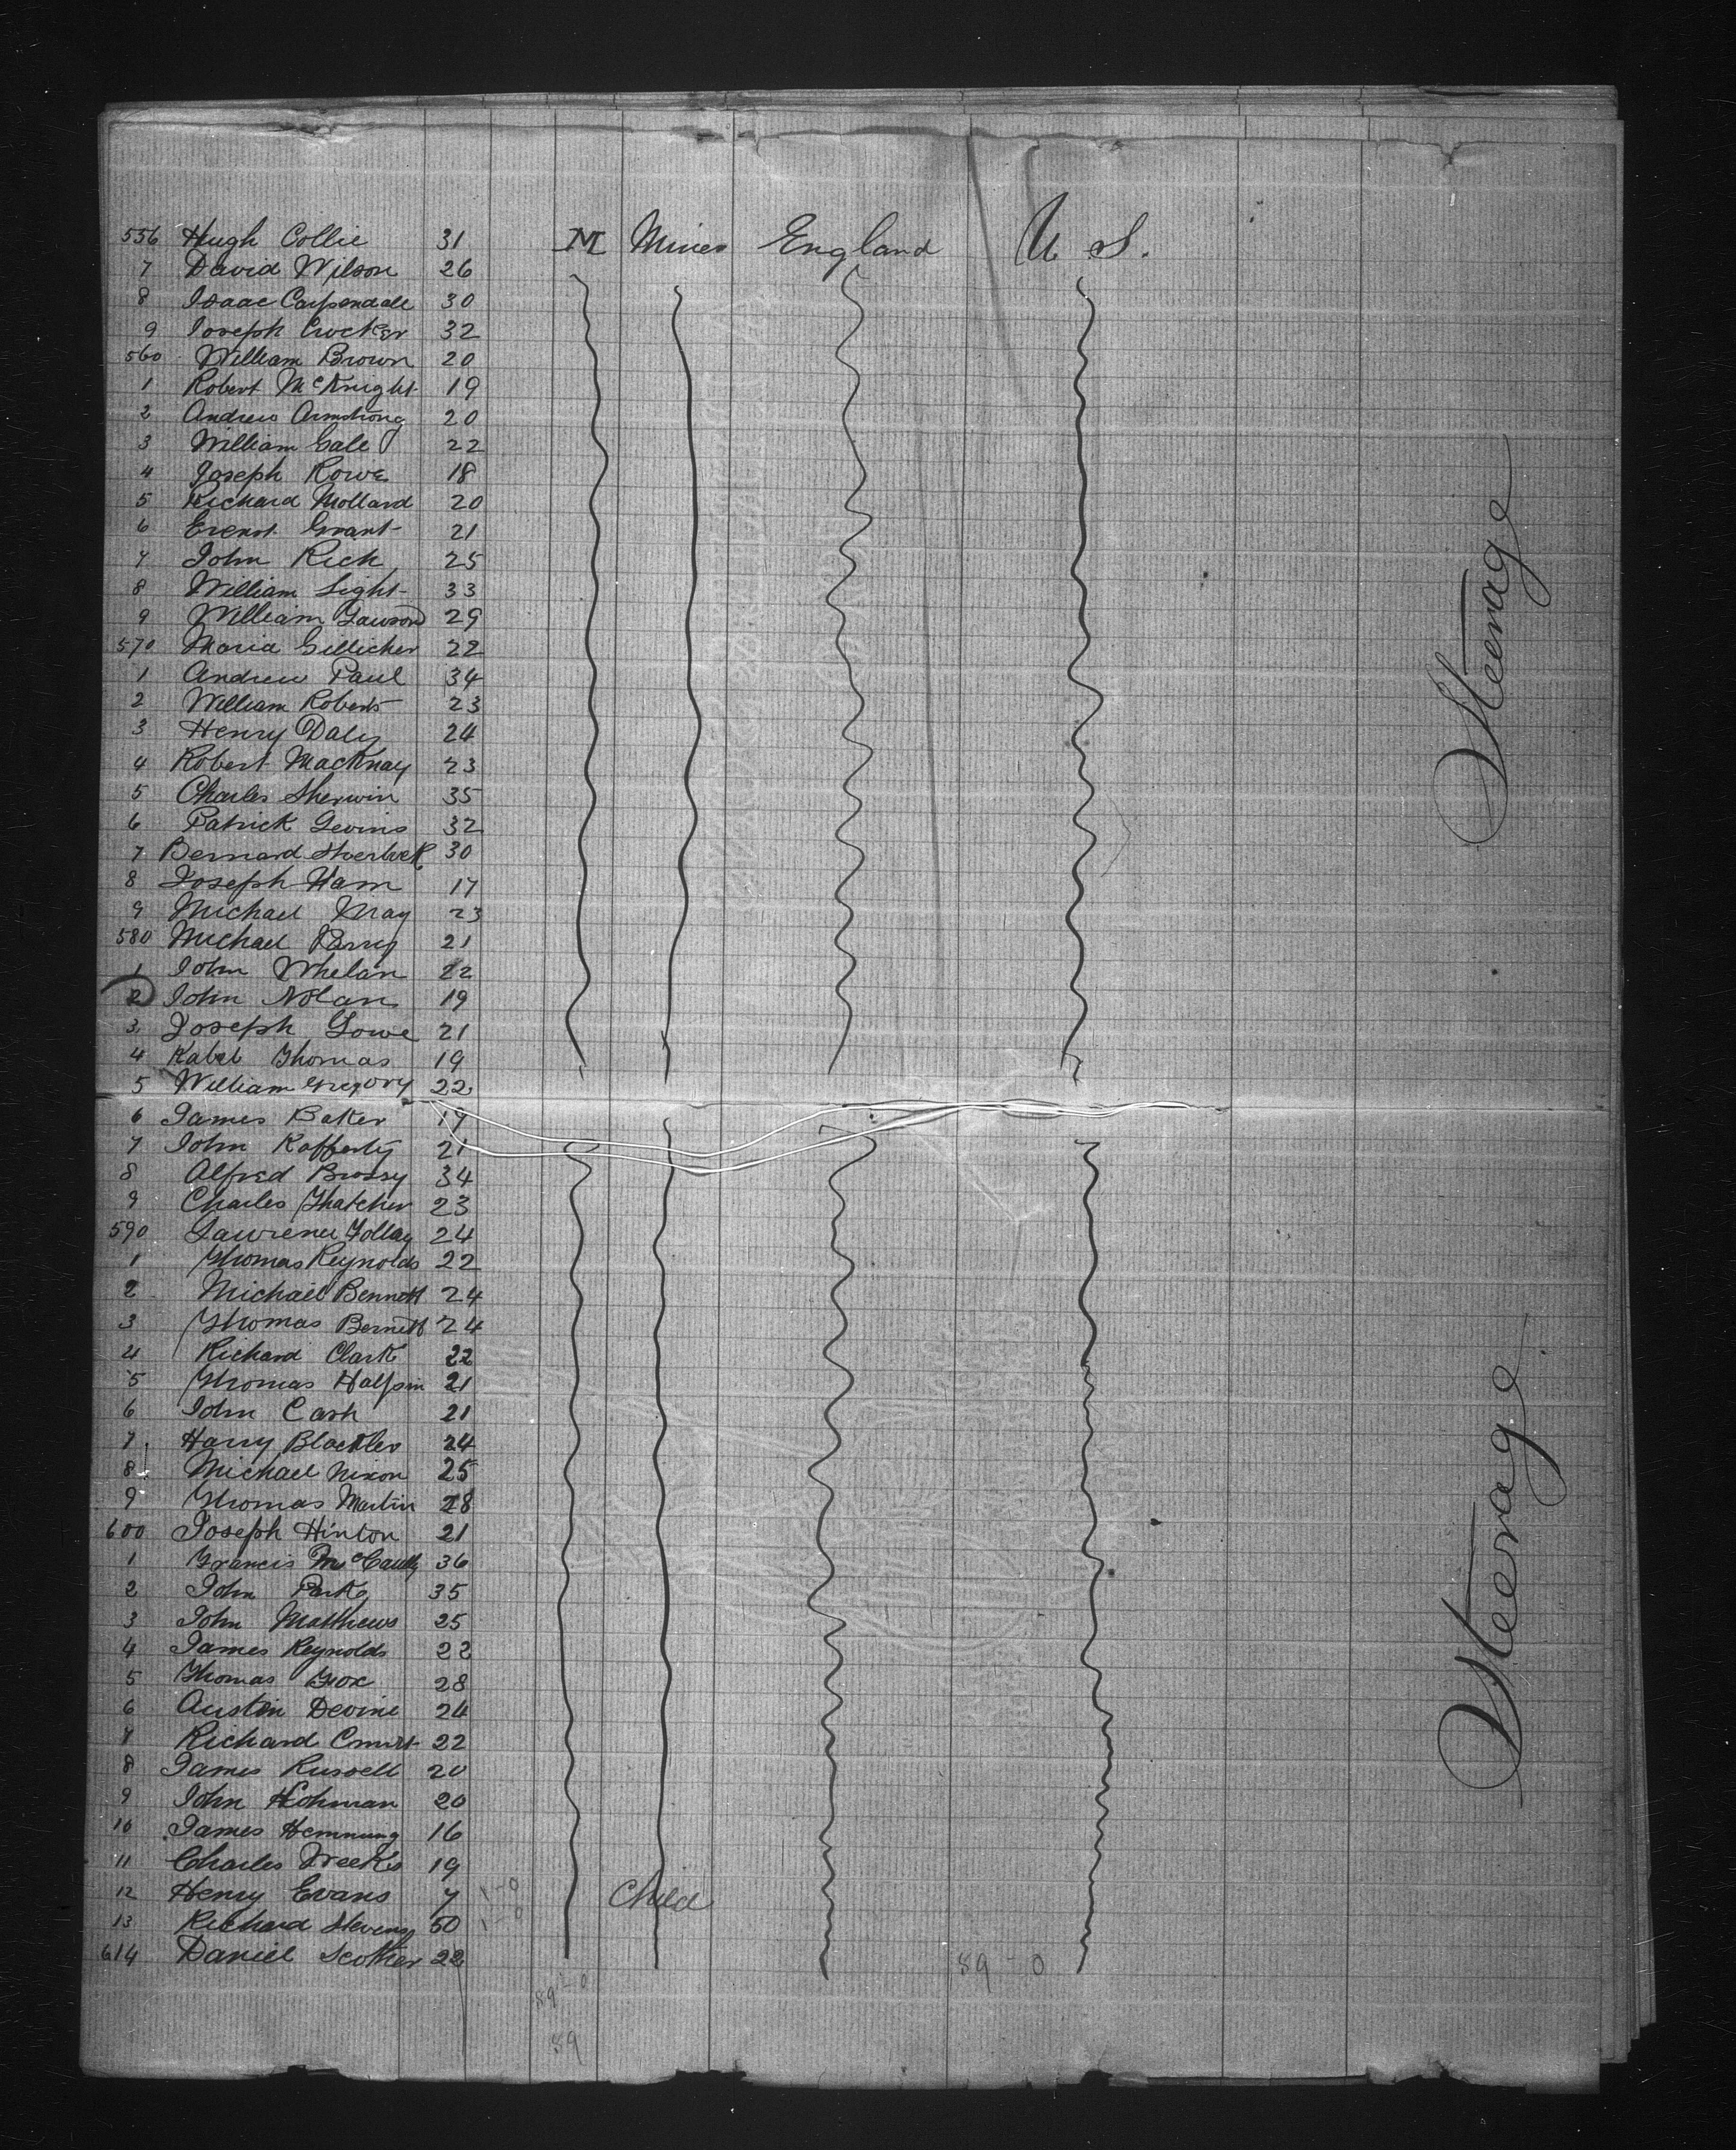 556 Hugh Collie 31 M Miner England U S.
7 David Wilson 26
8 Isaac Carpendale 30
9 Joseph Crocker 32
560 William Brown 20
1 Robert McKnight 19
2 Andrew Armstrong 20
3 William Gale 22
4 Joseph Rowe 18
5 Richard Mollard 20
6 Grant 21
7 John Rick 25
8 William Light 33
9 William 29
570 Maria Gillicher 22
1 Andrew Paul 34
2 William Roberts 23
3 Henry Daly 24
4 Robert MacKnay 23
5 Charles Sherwin 35
6 Patrick Gevins 32
7 Bernard 30
8 Joseph Ham 17
9 Michael May 23
580 Michael 21
1 John Whelan 22
2 John Nolan 19
3 Joseph Lowe 21
4 Thomas 19
5 William Gregory 22
6 James Baker 19
7 John Rafferty 21
8 Alfred 34
9 Charles Thatcher 23
590 Lawrence 24
1 Thomas Reynolds 22
2 Michael Bennett 24
3 Thomas Bennett 24
4 Richard Clark 22
5 Thomas Halpin 21
6 John Cash 21
7 Harry Blackler 24
8 Michael Nixon 25
9 Thomas Martin 28
600 Joseph Hinton 21
1 Francis McCaully 36
2 John Park 35
3 John Matthews 25
4 James Reynolds 22
5 Thomas Fox 28
6 Austin Devine 24
7 Richard 22
8 James Russell 20
9 John Hohman 20
10 James Hemnung 16
11 Charles Weeks 19
12 Henry Evans 7 1-0 Child
13 Richard Stevens 50 1-0
614 Daniel Scother 22 89-0
89-0
89
Steerage
Steerage